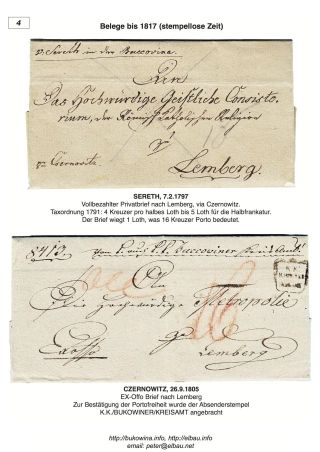 4
Belege bis 1817 (stempellose Zeit)
v. Sereth in der Buccovina.
An
Das Hochwürdige Geistliche Consisto,
rium, der Römisch Catholischen Religion
zu
pr. Czernowitz
Lemberg.
SERETH, 7.2.1797
Vollbezahlter Privatbrief nach Lemberg, via Czernowitz.
Taxordnung 1791: 4 Kreuzer pro halbes Loth bis 5 Loth für die Halbfrankatur.
Der Brief wiegt 1 Loth, was 16 Kreuzer Porto bedeutet.
Buccoviner Kreisamt
An
Die hochwürdige Metropolie
Lemberg
CZERNOWITZ, 26.9.1805
EX-Offo Brief nach Lemberg
Zur Bestätigung der Portofreiheit wurde der Absenderstempel
K.K./BUKOWINER/KREISAMT angebracht
http://bukowina.info, http://elbau.info
email: peter@elbau.net